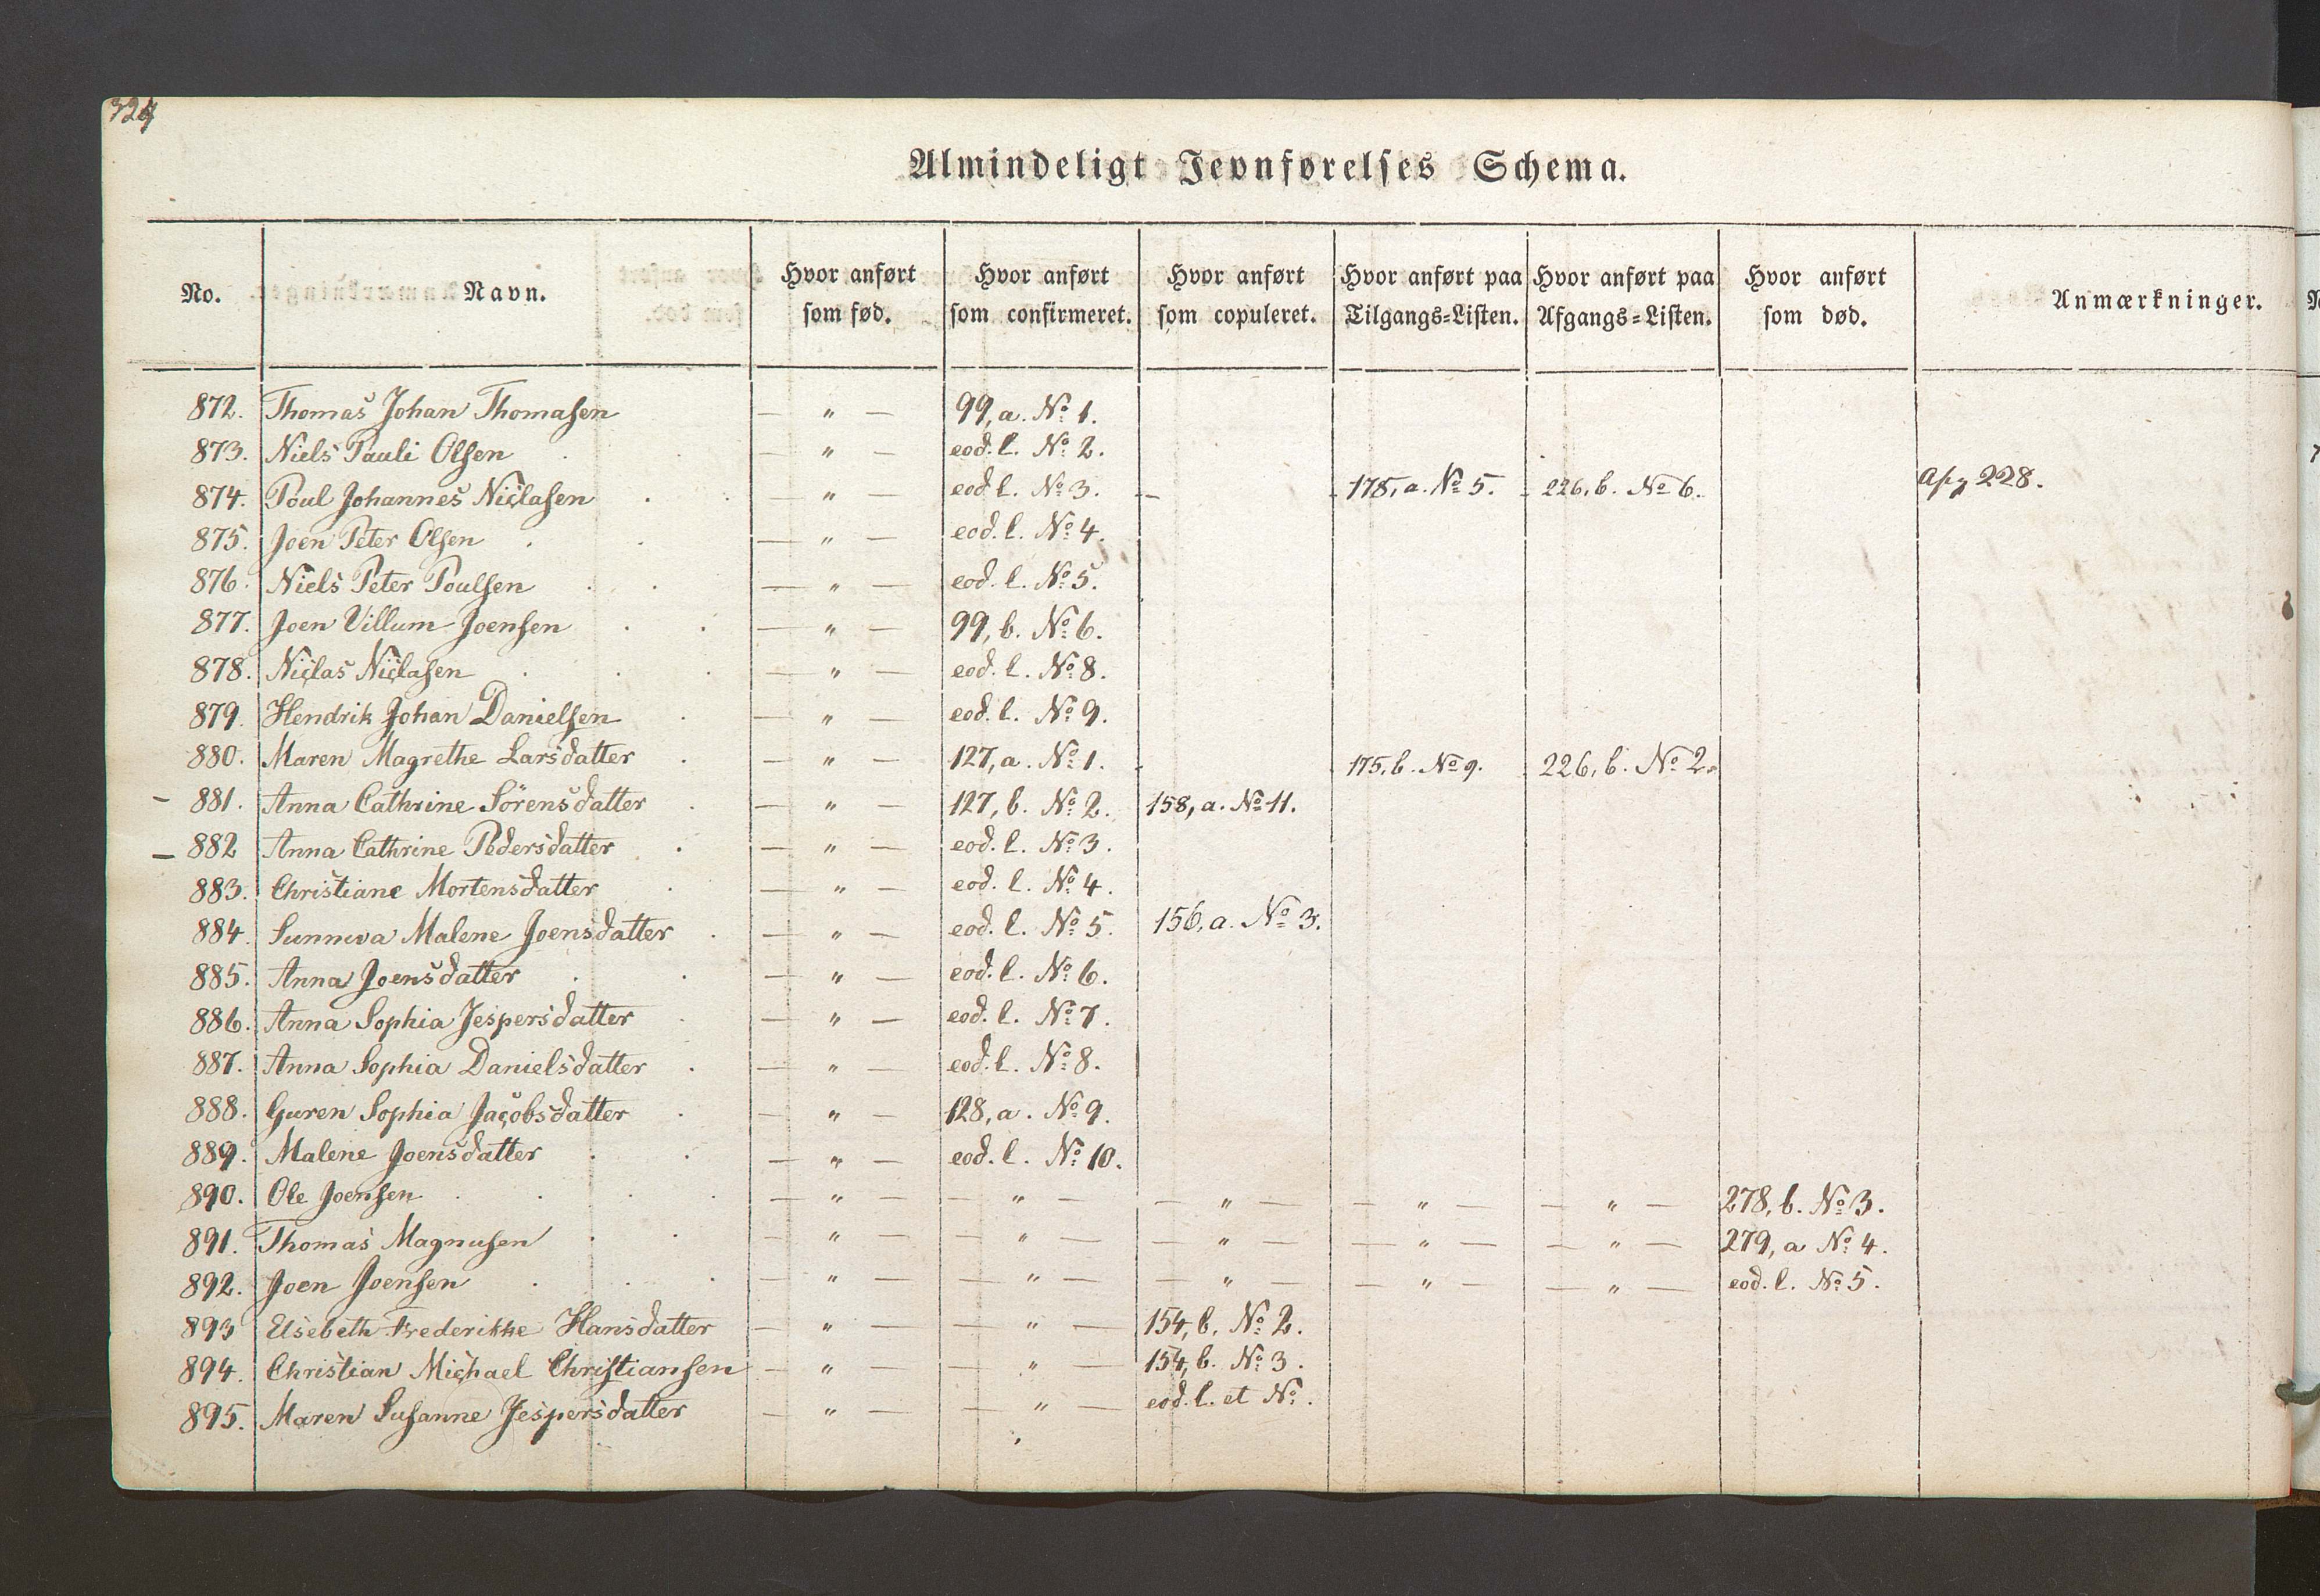 Almindeligt Jevnførelses Schema.
No. Navn. Hvor anført som fød. Hvor anført som confirmeret. Hvor anført som copuleret. Hvor anført paa Tilgangs=Listen. Hvor anført paa Afgangs=Listen. Hvor anført som død. Anmærkninger.
872. Thomas Johan Thomasen — " — 99, a. No 1.
873. Niels Pauli Olsen — " — eod. l. No 2.
874. Poul Johannes Niclasen — " — eod. l. No 3. — 175, a. No 5. 226, b. No 6. 228.
875. Joen Peter Olsen — " — eod. l. No 4.
876. Niels Peter Poulsen — " — eod. l. No 5.
877. Joen Villum Joensen — " — 99, b. No 6.
878. Niclas Niclasen — " — eod. l. No 8.
879. Hendrik Johan Danielsen — " — eod. l. No 9.
880. Maren Magrethe Larsdatter — " — 127, a. No 1. 175, b. No 9. 226, b. No 2.
– 881. Anna Cathrine Sörensdatter — " — 127, b. No 2. 158, a. No 11.
– 882 Anna Cathrine Pedersdatter — " — eod. l. No 3.
883. Christiane Mortensdatter — " — eod. l. No 4.
884. Sunneva Malene Joensdatter — " — eod. l. No 5. 156, a. No 3.
885. Anna Joensdatter — " — eod. l. No 6.
886. Anna Sophia Jespersdatter — " — eod. l. No 7.
887. Anna Sophia Danielsdatter — " — eod. l. No 8.
888. Guren Sophia Jacobsdatter — " — 128, a. No 9.
889. Malene Joensdatter — " — eod. l. No 10.
890. Ole Joensen — " — — " — — " — — " — — " — 278, b. No 3.
891. Thomas Magnusen — " — — " — — " — — " — — " — 279, a No 4.
892. Joen Joensen — " — — " — — " — — " — — " — eod. l. No 5.
893 Elsebeth Frederikke Hansdatter — " — — " — 154, b. No 2.
894. Christian Michael Christiansen — " — — " — 154, b. No 3.
895. Maren Susanne Jespersdatter — " — — " — eod. l. et No.